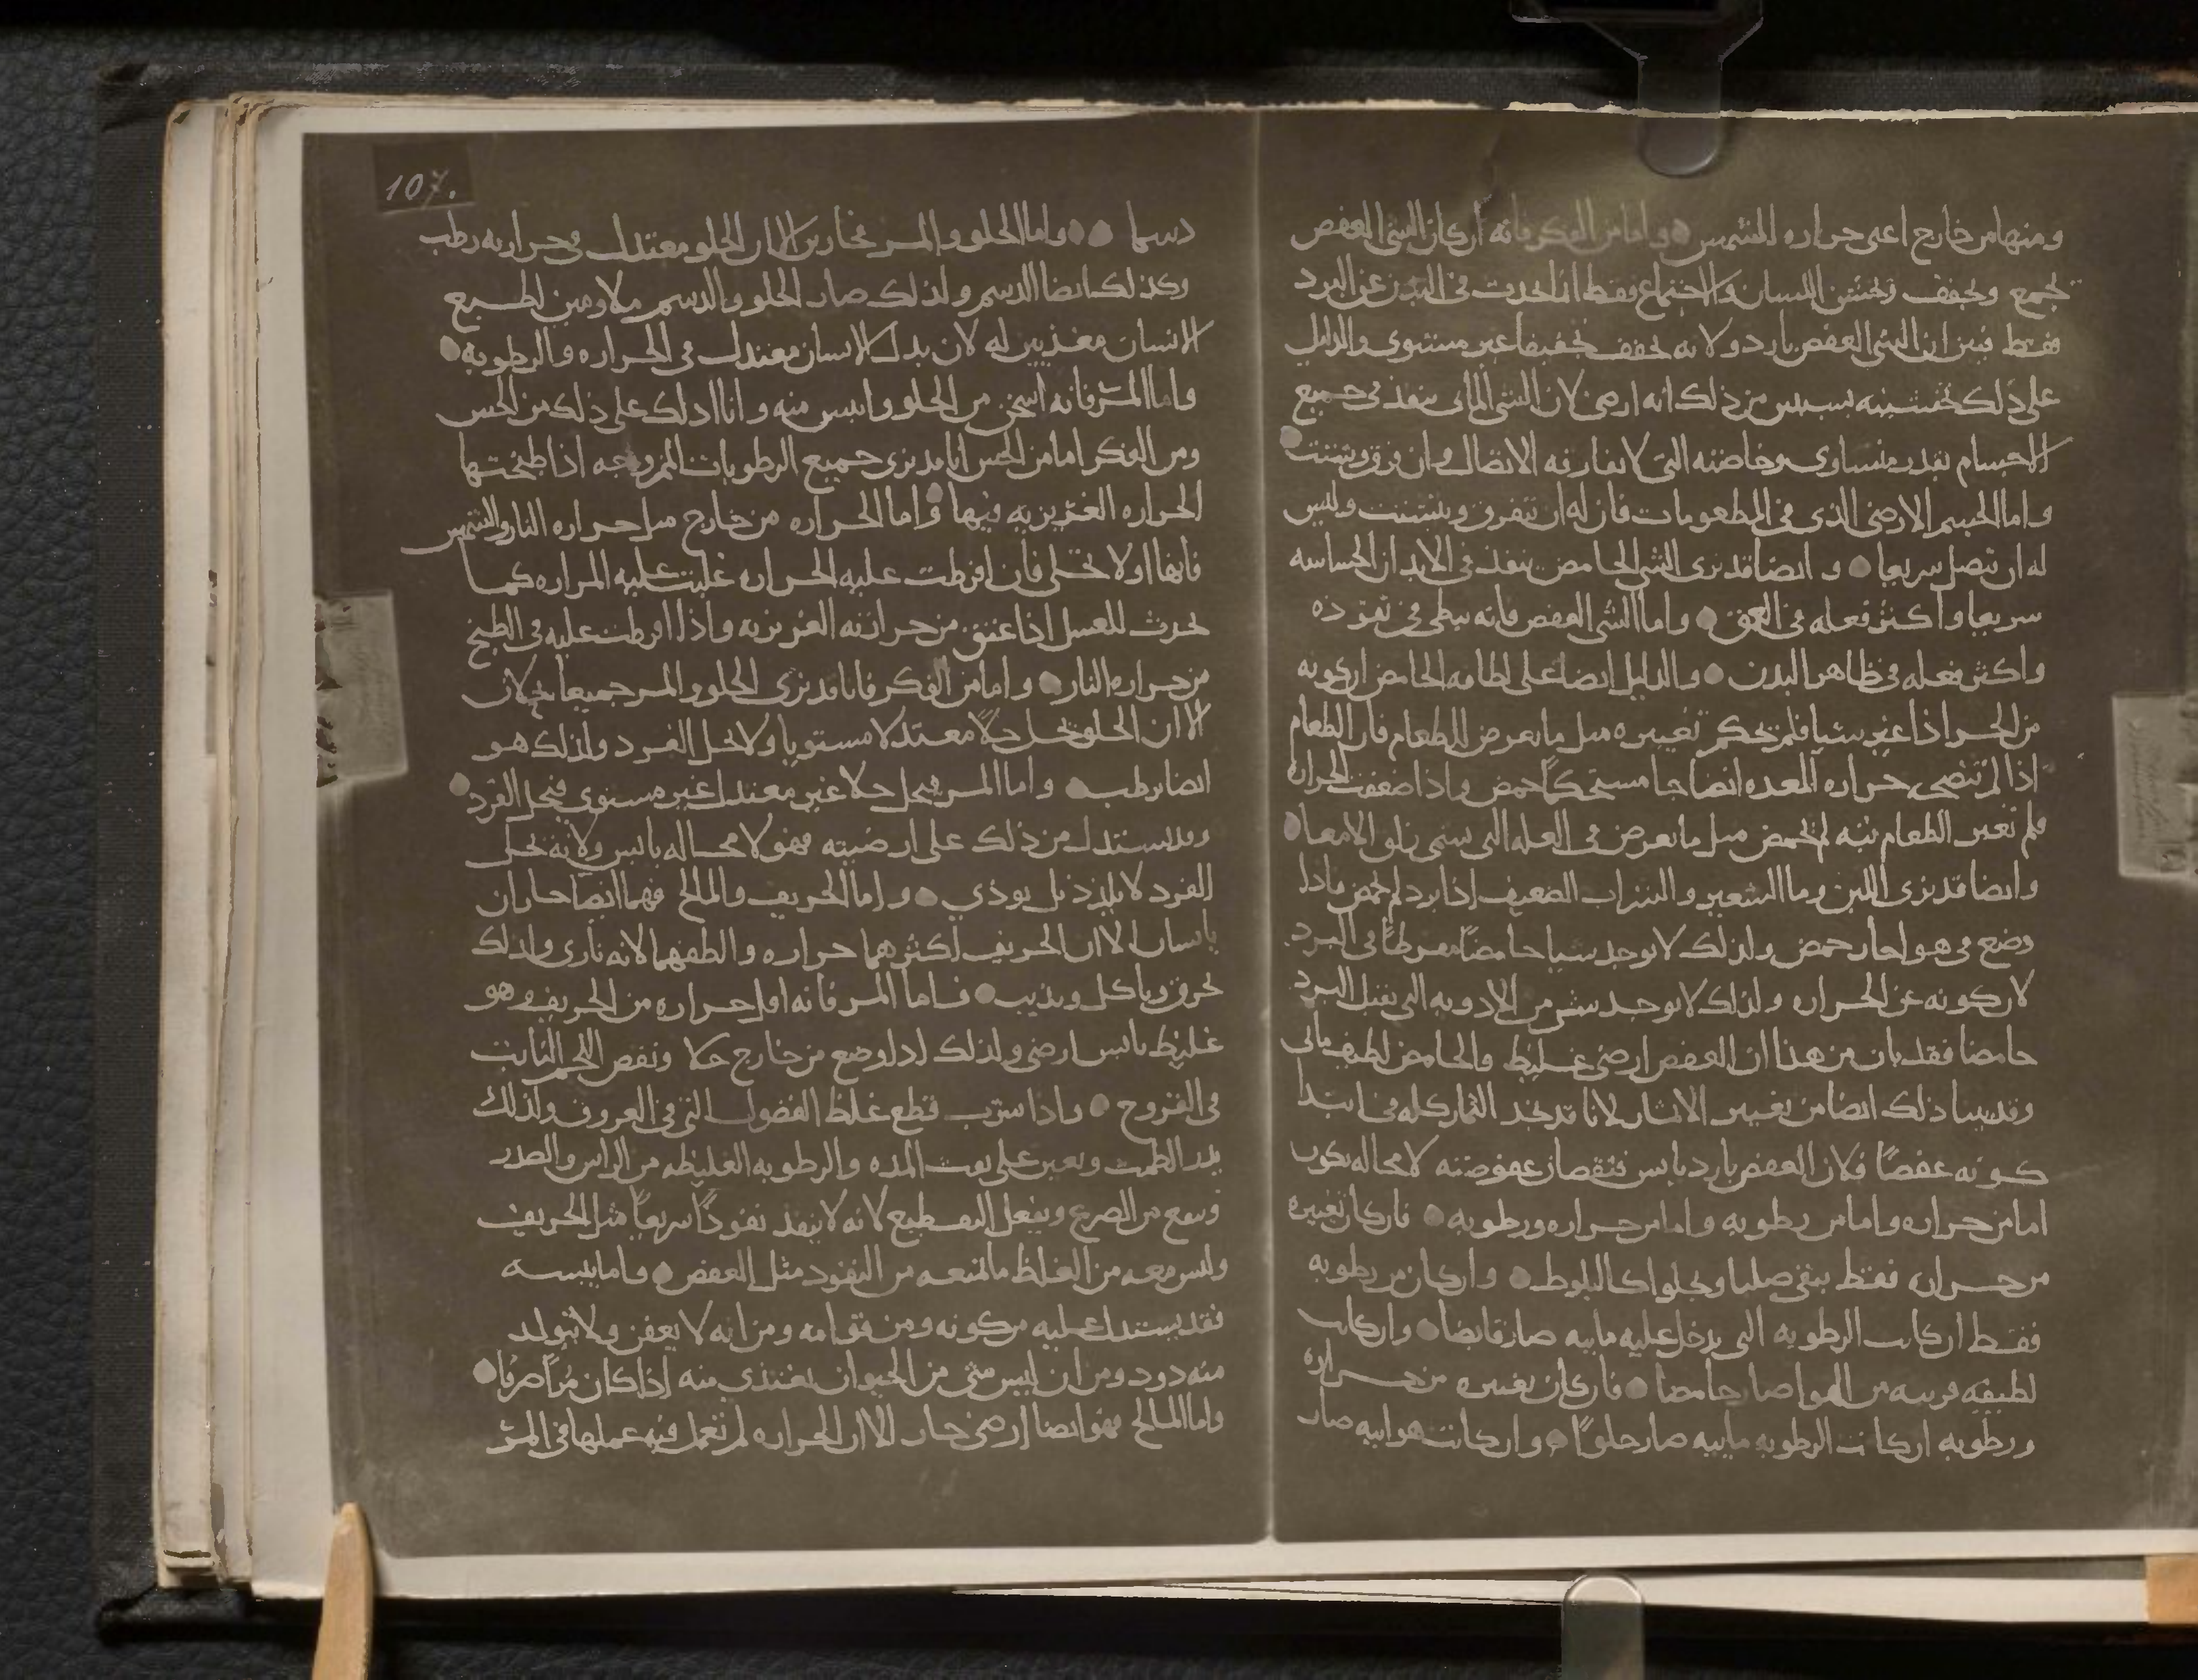 ومنها من خارج اعنى حراره الشمس واما من الفكر فانه ان كان الشى العفص
يجمع ويجفف ويخشن اللسان والاجتماع فقط انما يحدث فى البدن عن البرد
فقط فبين ان الشى العفص بارد ولانه يجفف تجفيفا غير مستوى والدليل
على ذلك تخشينه يبين من ذلك انه ارضى لان الشى المائى ينفذ فى جميع
الاجسام بقدر متساوى وخاصته التى لا تفارقه الاتصال وان فرق وشتت
واما الجسم الارضى الذى فى المطعومات فان له ان يتفرق ويتشتت وليس
له ان يتصل سريعا وايضا قد نرى الشى الحامض ينفذ فى الابدان الحساسه
سريعا واكثر فعله فى العمق واما الشى العفص فانه يبطى فى نفوذه
واكثر فعله فى ظاهر البدن والدليل ايضا على لطافه الحامض ان كونه
من الحر اذا غير شيا فلم يحكم تغييره مثل ما يعرض للطعام فان الطعام
اذا لم تنضجه حراره المعده انضاجا مستحكما حمض واذا ضعفت الحراره
فلم تغير الطعام بته لم يحمض مثل ما يعرض فى العله التى تسمى زلق الامعا
وايضا قد نرى اللبن وما الشعير والشراب الضعيف اذا برد لم يحمض فاذا
وضع فى هوا حار حمض ولذلك لا يوجد شيا حامضا مفرطا فى البرد
لان كونه عن الحراره ولذلك لا يوجد شى من الادويه التى تقتل البرد
حامضا فقد بان من هذا ان العفص ارضى غليظ والحامض لطيف مائى
وقد يبينا ذلك ايضا من تغيير الاثمار لانا قد نجد الثمار كله فى ابتدا
كونه عفصا فلان العفص بارد يابس فنقصان عفوصته لا محاله يكون
اما من حراره واما من رطوبه واما من حراره ورطوبه فان كان تغييره
من حراره فقط يبقى صلبا ويحلوا كالبلوط وان كان من رطوبه
فقط ان كانت الرطوبه التى يدخل عليه مائيه صار قابضا وان كانت
لطيفه قريبه من الهوا صار حامضا فان كان تغييره من حراره
ورطوبه ان كانت الرطوبه مائيه صار حلوا وان كانت هوائيه صار
107.
دسما واما الحلو والمر فحارين الا ان الحلو معتدل فى حرارته رطب
وكذلك ايضا الدسم ولذلك صار الحلو والدسم ملاومين لطبع
الانسان مغذيين له لان بدن الانسان معتدل فى الحراره والرطوبه
واما المر فانه اسخن من الحلو وايبس منه وانا ادلك على ذلك من الحس
ومن الفكر اما من الحس فانا قد نرى جميع الرطوبات الممزوجه اذا طبختها
الحراره الغريزيه فيها واما الحراره من خارج مثل حراره النار والشمس
فانها اولا تحلى فان افرطت عليه الحراره غلبت عليه المراره كما
يحدث للعسل اذا عتق من حرارته الغريزيه واذا افرطت عليه فى الطبخ
من حراره النار واما من الفكر فانا قد نرى الحلو والمر جميعا يحلان
الا ان الحلو يحل حلا معتدلا مستويا ولا يحل الفرد ولذلك هو
ايضا رطب واما المر فيحل حلا غير معتدل غير مستوى فيحل الفرد
وقد يستدل من ذلك على ارضيته فهو لا محاله يابس ولانه يحل
الفرد لا يلذذ بل يوذى واما الحريف والمالح فهما ايضا حاران
يابسان الا ان الحريف اكثرهما حراره والطفهما لانه نارى ولذلك
يحرق وياكل ويذيب فاما المر فانه اقل حراره من الحريف وهو
غليظ يابس ارضى ولذلك اذا وضع من خارج جلا ونقص اللحم النابت
فى القروح واذا شرب قطع غلظ الفضول التى فى العروق ولذلك
يدر الطمث ويعين على نفث المده والرطوبه الغليظه من الراس والصدر
وينفع من الصرع ويفعل التقطيع لانه لا ينفذ نفوذا سريعا مثل الحريف
وليس معه من الغلظ ما يمنعه من النفوذ مثل العفص واما يبسه
فقد يستدل عليه من كونه ومن قوامه ومن انه لا يعفن ولا يتولد
منه دود ومن ان ليس شى من الحيوان يغتذى منه اذا كان مرا صرفا
واما المالح فهو ايضا ارضى حار الا ان الحراره لم تعمل فيه عملها فى المر